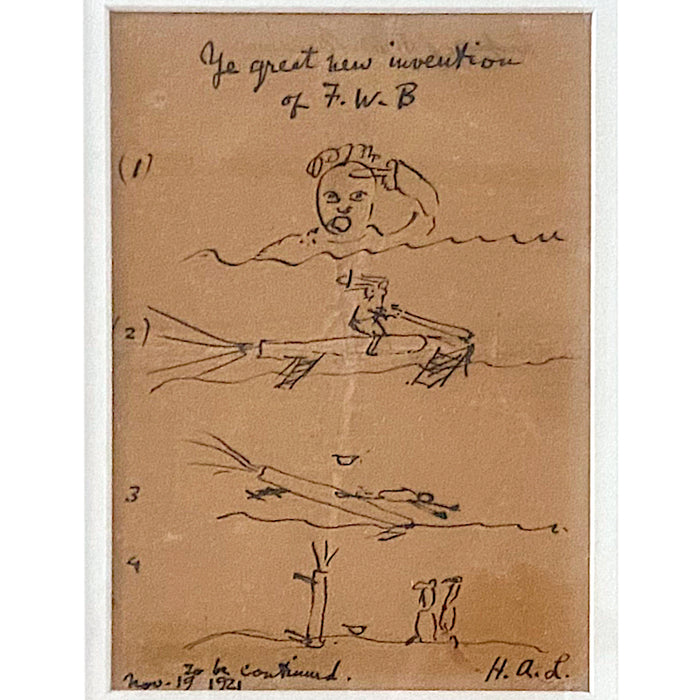 Ye great new invention
of F. W. B
(1)
(2)
3
4
To be continued.
Nov. 19 1921
H. A. L.